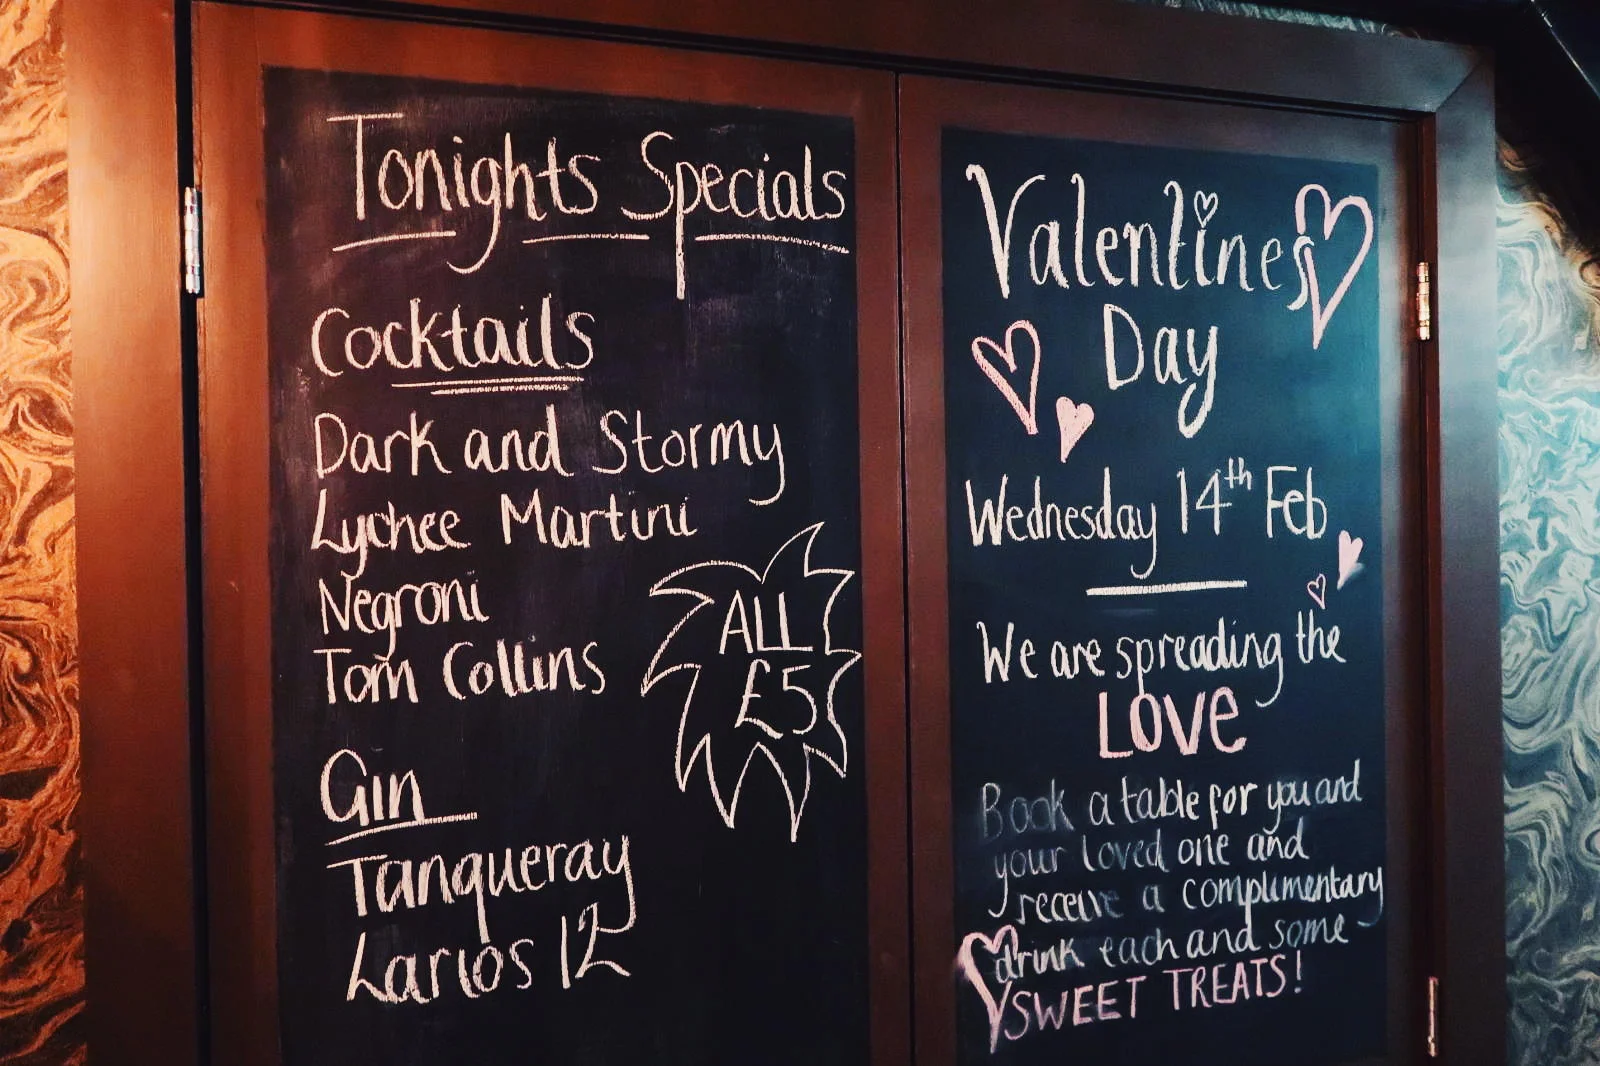 Tonights Specials
Cocktails
Dark and Stormy
Lychee Martini
Negroni
Tom Collins
ALL
£5
Gin
Tanqueray
Larios 12
Valentines
Day
Wednesday 14th Feb
We are spreading the
LOVE
Book a table for you and
your loved one and
receive a complimentary
drink each and some
SWEET TREATS!